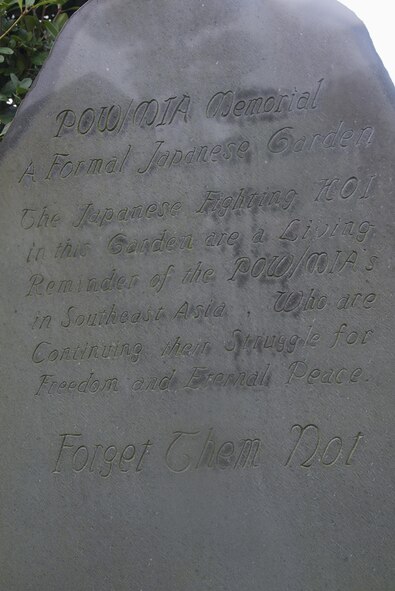 POW/MIA Memorial
A Formal Japanese Garden
The Japanese Fighting KOI
in this Garden are a Living
Reminder of the POW/MIA's
in Southeast Asia. Who are
Continuing their Struggle for
Freedom and Eternal Peace.
Forget Them Not